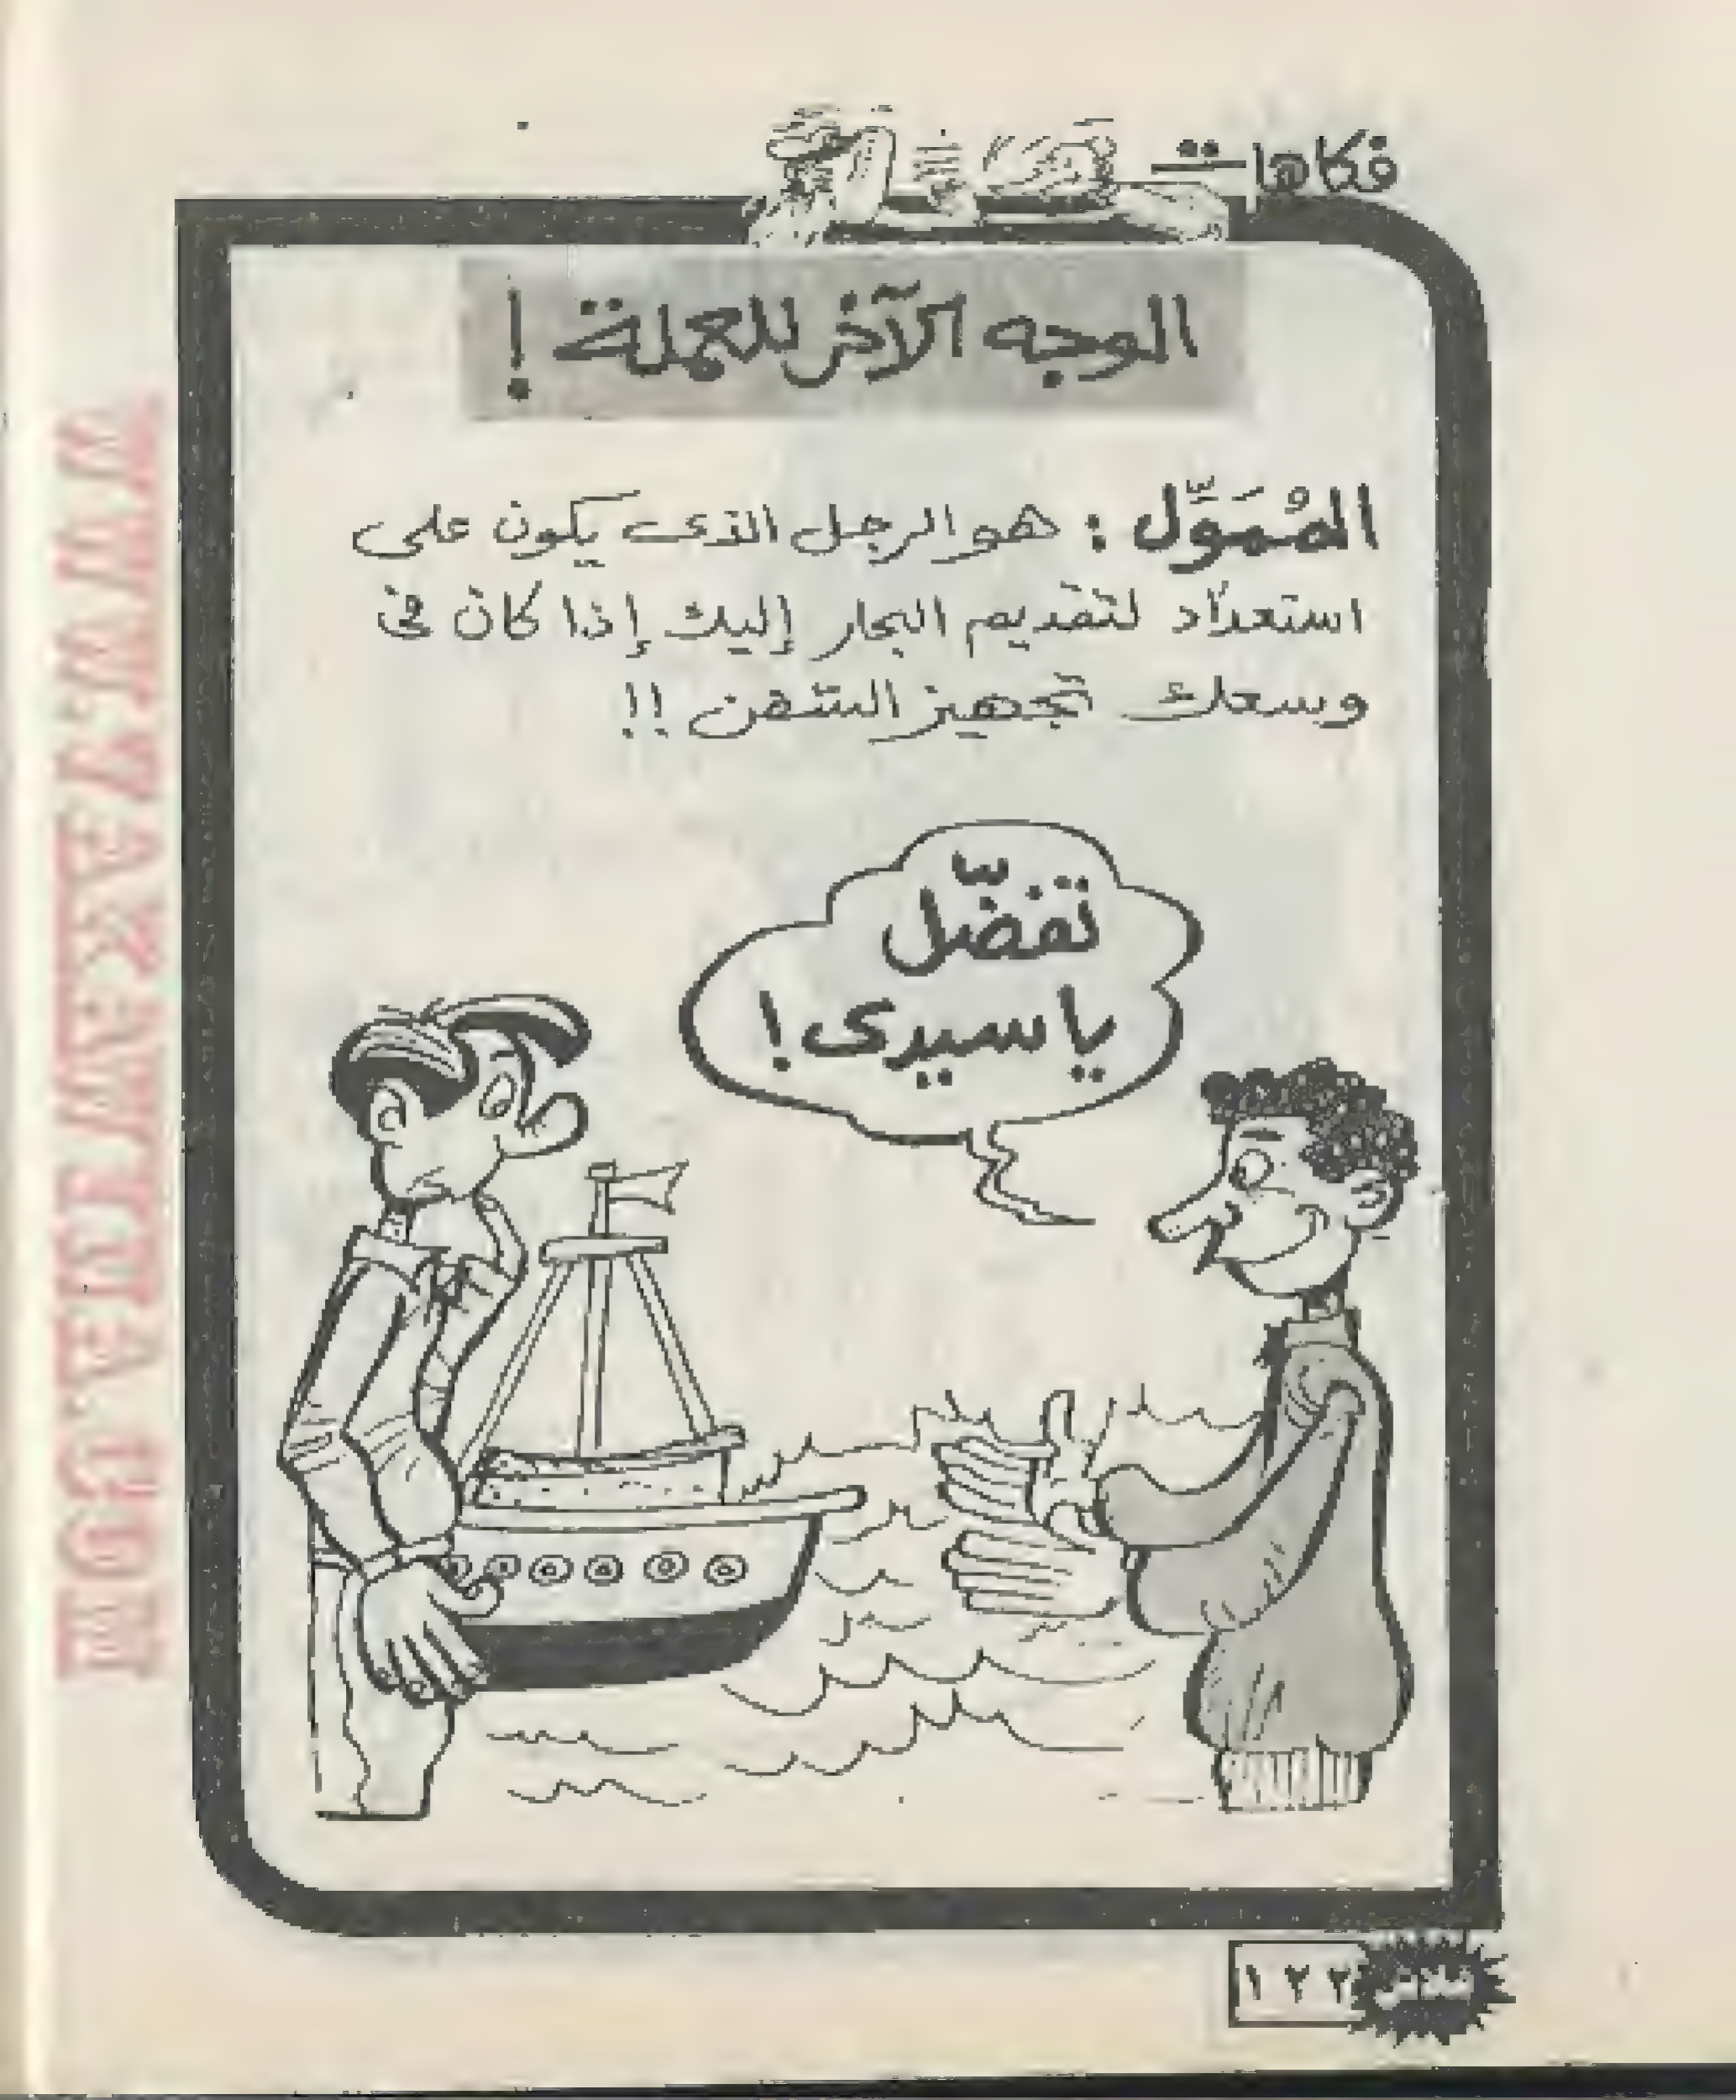 فكاهات
الوجه الآخر للعملة !
المُمَوِّل : هو الرجل الذى يكون على
استعداد لتقديم البحار إليك إذا كان فى
وسعك تجهيز السفن !!
تفضّل
يا سيدى !
فلاش ١٢٢